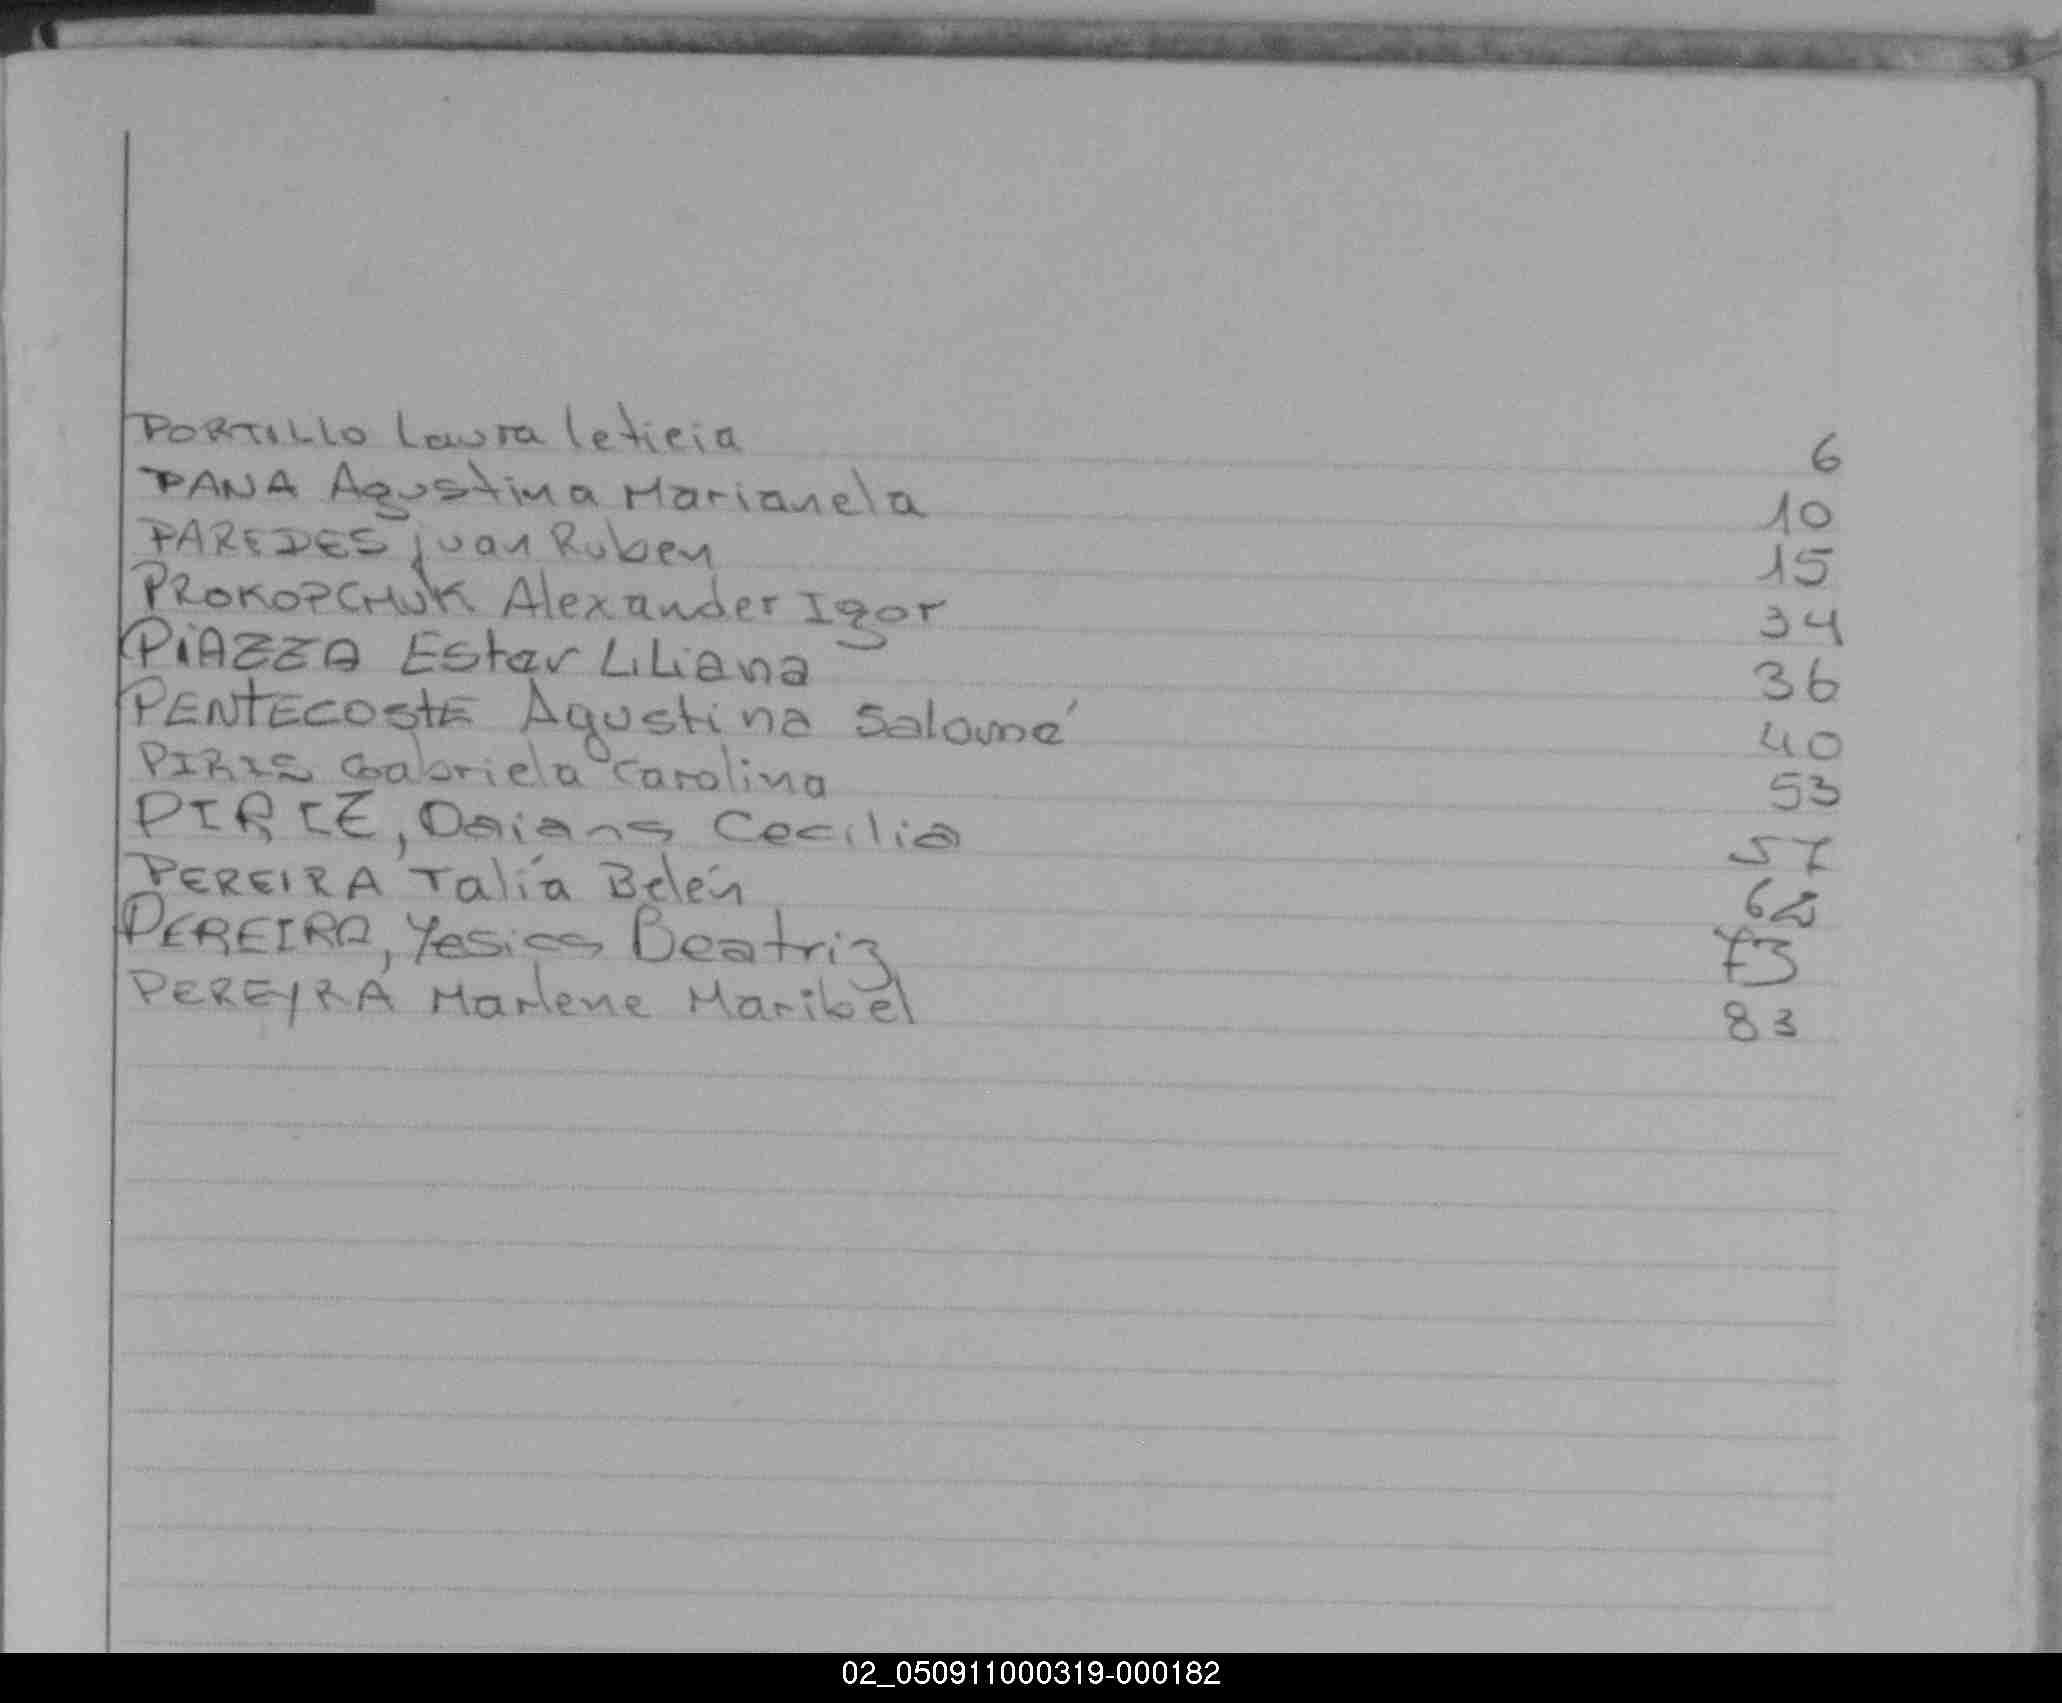 PORTILLO Laura leticia 6
PANA Agustina Marianela 10
PAREDES juan Ruben 15
PROKOPCHUK Alexander Igor 34
PiAZZA Ester LiLiana 36
PENTECOSTE Agustina Salomé 40
PIRIS Gabriela Carolina 53
PIRIZ, Daiana Cecilia 57
PEREIRA Talía Belén 62
PEREIRA, Yesica Beatriz 73
PEREYRA Marlene Maribel 83
02_050911000319-000182